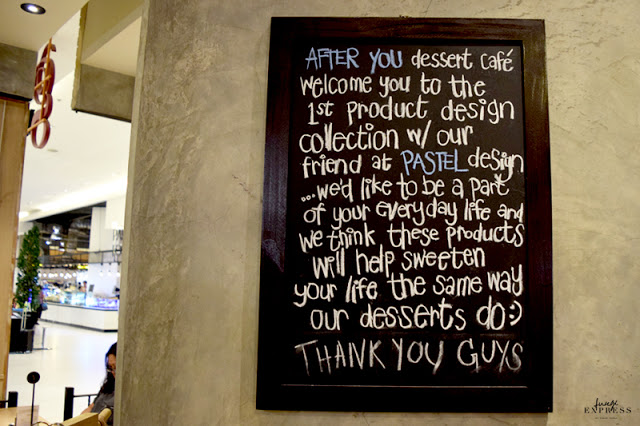 AFTER YOU dessert café
welcome you to the
1st product design
collection w/ our
friend at PASTEL design
...we'd like to be a part
of your everyday life and
we think these products
will help sweeten
your life the same way
our desserts do:)
THANK YOU GUYS
EXPRESS